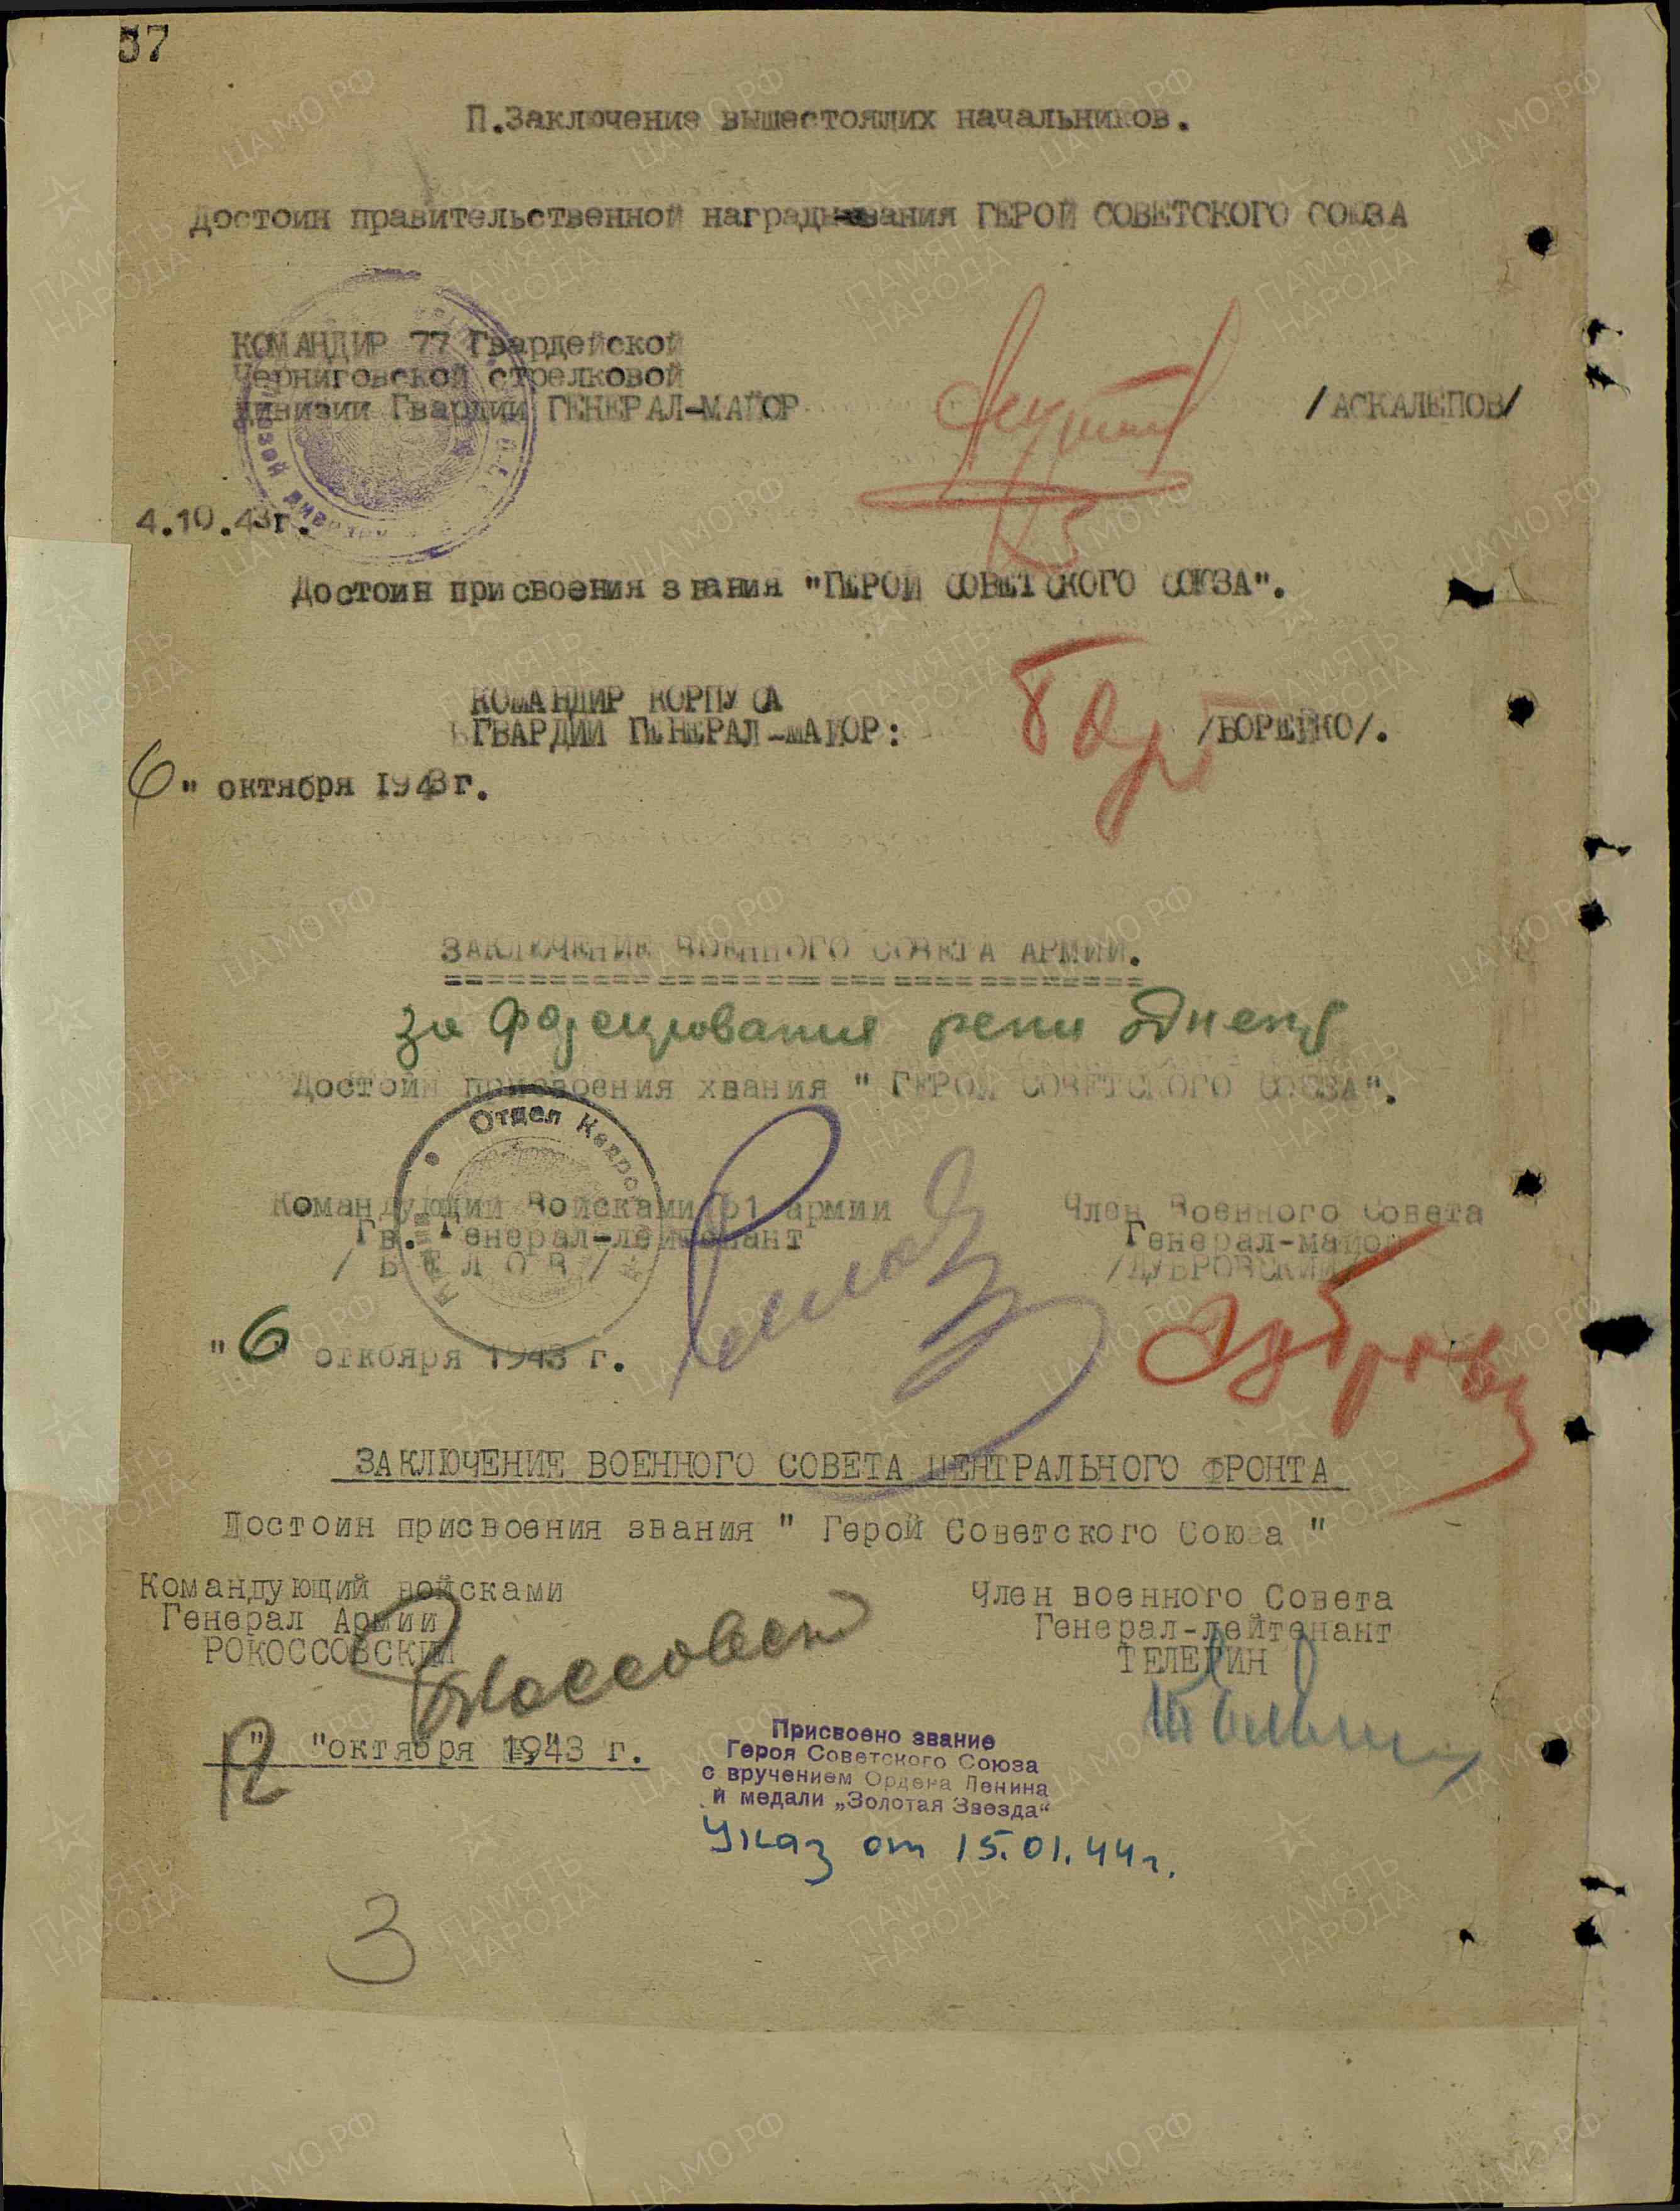 57
П.Заключение вышестоящих начальников.
Достоин правительственной награды звания ГЕРОЙ СОВЕТСКОГО СОЮЗА
КОМАНДИР 77 Гвардейской
Черниговской стрелковой
дивизии Гвардии ГЕНЕРАЛ-МАЙОР /АСКАЛЕПОВ/
4.10.43г.
Достоин присвоения звания "ГЕРОЙ СОВЕТСКОГО СОЮЗА".
КОМАНДИР КОРПУСА
ГВАРДИИ ГЕНЕРАЛ-МАЙОР: /БОРЕЙКО/.
6" октября 1943г.
ЗАКЛЮЧЕНИЕ ВОЕННОГО СОВЕТА АРМИИ.
за форсирования реки Днепр
Достоин присвоения хвания " ГЕРОЙ СОВЕТСКОГО СОЮЗА".
Отдел Кадров
Командующий Войсками 61 армии
Гв. Генерал-лейтенант
/ Б Е Л О В /
Член Военного Совета
Генерал-майор
/ДУБРОВСКИЙ/
"6" откбяря 1943 г.
ЗАКЛЮЧЕНИЕ ВОЕННОГО СОВЕТА ЦЕНТРАЛЬНОГО ФРОНТА
Достоин присвоения звания " Герой Советского Союза "
Командующий войсками
Генерал Армии
РОКОССОВСКИЙ
Рокоссовский
Член военного Совета
Генерал-лейтенант
ТЕЛЕГИН
Телегин
"12 "октября 1943 г.
Присвоено звание
Героя Советского Союза
с вручением Ордена Ленина
и медали „Золотая Звезда“
Указ от 15.01.44г.
3
ПАМЯТЬ НАРОДА
ЦАМО.РФ